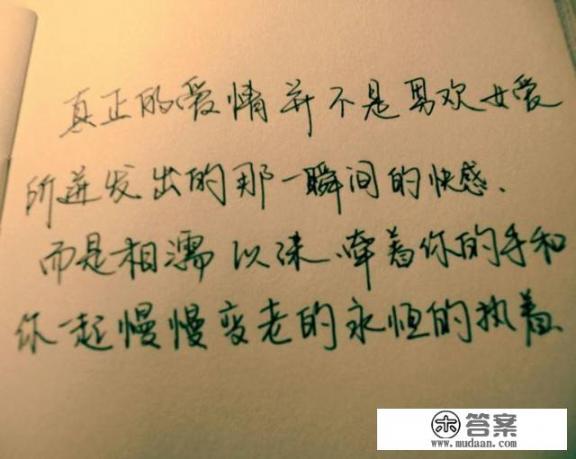 真正的爱情并不是男欢女爱
所迸发出的那一瞬间的快感、
而是相濡以沫、牵着你的手和
你一起慢慢变老的永恒的执着
木答案
www.mudaan.com